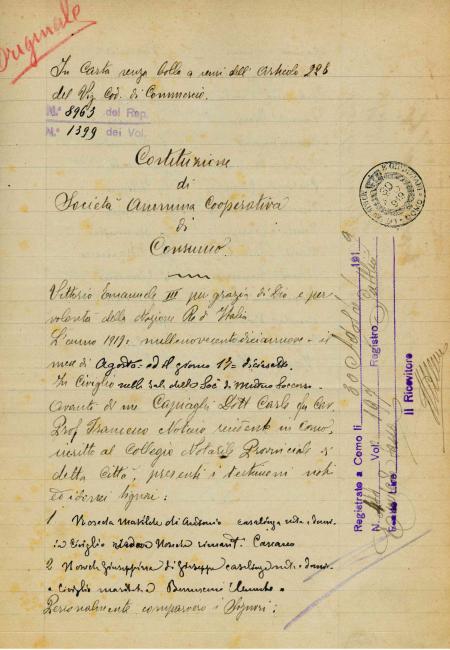 Originale
In Carta senza bollo a sensi dell'Articolo 226
del Vig. Cod. di Commercio.
N.° 8963 del Rep.
N.° 1399 dei Vol.
Costituzione
di
Società Anonima Cooperativa
di
Consumo
Vittorio Emanuele III per grazia di Dio e per
volontà della Nazione Re d'Italia
L'anno 1919 millenovecentodiciannove - il
mese di Agosto ed il giorno 17 = diciasette
In Civiglio nella sala della Soc. di Mutuo Soccorso.
Avanti di me Dott. Carlo fu Cav.
Prof. Francesco Notaro residente in Como,
iscritto al Collegio Notarile Provinciale di
detta Città, presenti i testimoni noti
ed idonei Signori:
1 Noseda Matilde di Antonio casalinga nata e dom.
in Civiglio Noseda
2 Noseda Giuseppina di Giuseppe casalinga nata e dom.
Civiglio maritata
Personalmente comparvero i Signori:
Registrato a Como li 30 191 9
N. Vol. 107 Registro
Lire
Il Ricevitore